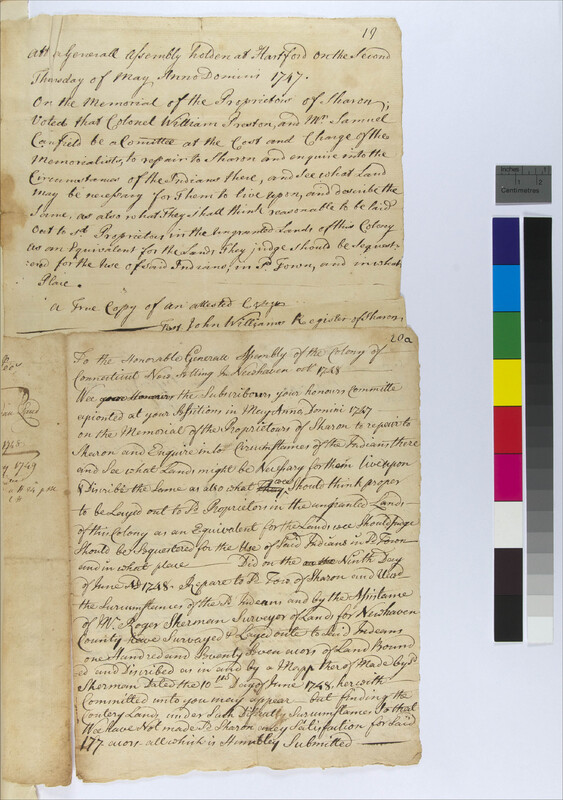 19
Att a Generall Assembly holden at Hartford on the Second
Thursday of May Anno Domini 1747.
On the Memorial of the Proprietors of Sharon,
Voted that Colonel William Preston, and Mr. Samuel
Canfield be a Comittee at the Cost and Charge of the
Memorialists, to repair to Sharon and enquire into the
Circumstances of the Indians there, and See what Land
may be necessary for Them to live upon, and describe the
Same, as also what they Shall think reasonable to be laid
out to sd. Proprietors in the ungranted Lands of this Colony
as an Equivalent for the Lands They judge Should be Sequest-
ered for the Use of said Indians, in sd. Town, and in what
Place.
A True Copy of an attested Copy
Test John Williams Register of Sharon
20a
To the Honorable Generall Assembly of the Colony of
Connecticut Now Sitting in Newhaven octr 1748
Wee your Honours the Subscribours, your honours Committe
apionted at your Sessions in May Anno Domini 1747
on the Memorial of the Proprietours of Sharon to repair to
Sharon and Enquire into Circumstances of the Indians there
and See what Lands might be Necessary for them live upon
& Discribe the Same as also what They wee Should think proper
to be Layed out to sd. Proprietors in the ungranted Lands
of this Colony as an Equivalent for the Lands wee Should judge
Should be Sequestered for the Use of Said Indians in sd. Town
and in what place Did on the Ninth Day
of June AD 1748 Repare to sd. Town of Sharon and View
the Surcumstances of the sd. Indeans and by the Assistance
of Mr. Roger Sherman Surveyor of Lands for Newhaven
County have Survayed & Layed oute to Said Indeans
one Hundred and Seventy Seven acors of Land Bound
ed and Discribed as in and by a Mapp therof Made by sd
Sherman Dated the 10th Day of June 1748, herewith
Committed unto you may appear but finding the
Contery Land under Such Dificulty Surcumstances is that
Wee have Not made sd. Sharon aney Satisfaction for Said
177 acors all which is Humbley Submitted
1748
1749